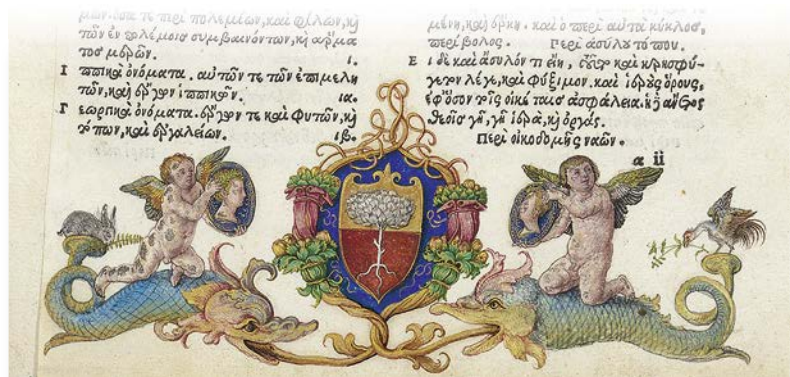 μων. ὅσα τε περὶ πολεμίων, καὶ φίλων, καὶ
τῶν ἐν πολέμοις συμβαινόντων, καὶ ἅρμα
τος μερῶν. ι.
Ι ππικὰ ὀνόματα. αὐτῶν τε τῶν ἐπιμελη
τῶν, καὶ ἱππικῶν. ια.
Γ εωργικὰ ὀνόματα. τε καὶ φυτῶν, καὶ
τόπων, καὶ ἐργαλείων. ιβ.
καὶ ὁ περὶ αὐτὰ κύκλος,
περίβολος. Περὶ ἀσύλου τόπου.
Ε ἰ δὲ καὶ ἄσυλόν τι εἴη, καὶ κρησφύ-
γετον λέγε, καὶ φύξιμον. καὶ ἱεροὺς ὅρους,
ἐφ' ὅσον τοῖς οἰκέταις ἀσφάλεια. ἡ ἄνετος
θεοῖς γῆ, γῆ ἱερὰ, καὶ ὀργάς.
Περὶ οἰκοδομῆς ναῶν.
a ii